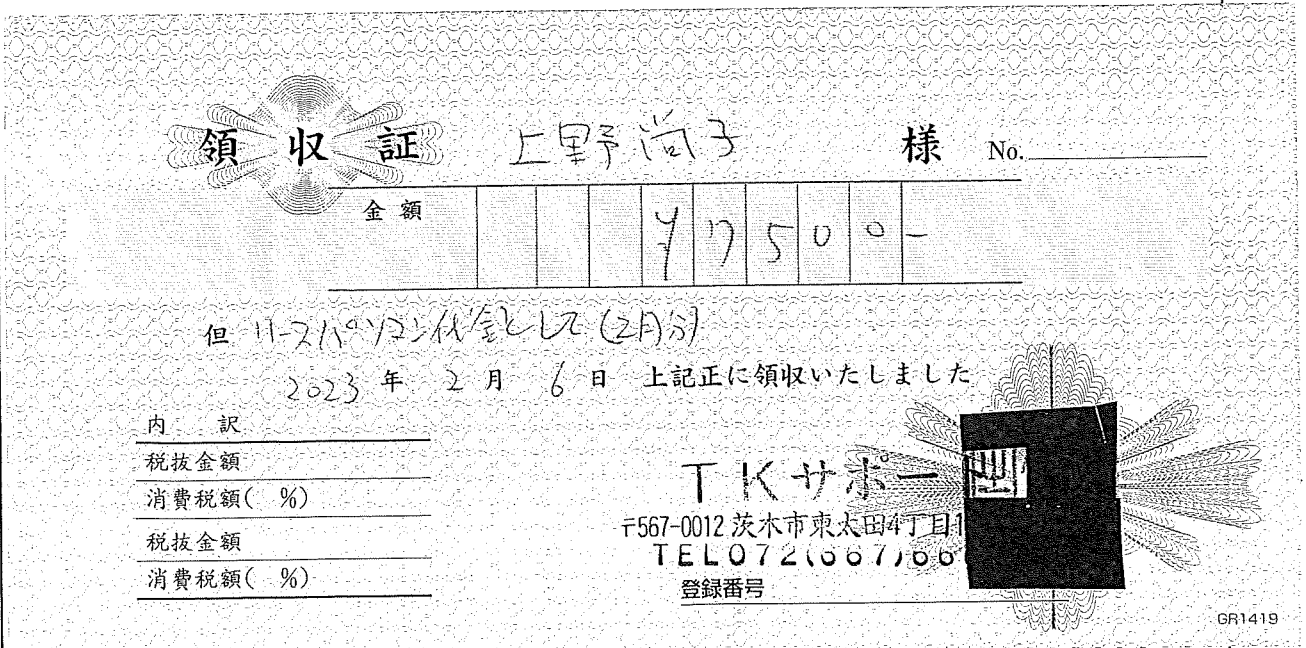 領収証 上野尚子 様 No.
金額 ¥17500-
但 リースパソコン代金として(2月分)
2023年 2月 6日 上記正に領収いたしました
内訳
税抜金額
消費税額( %)
税抜金額
消費税額( %)
TKサポート
〒567-0012 茨木市東太田4丁目1
TEL072(667)66
登録番号
GR1419